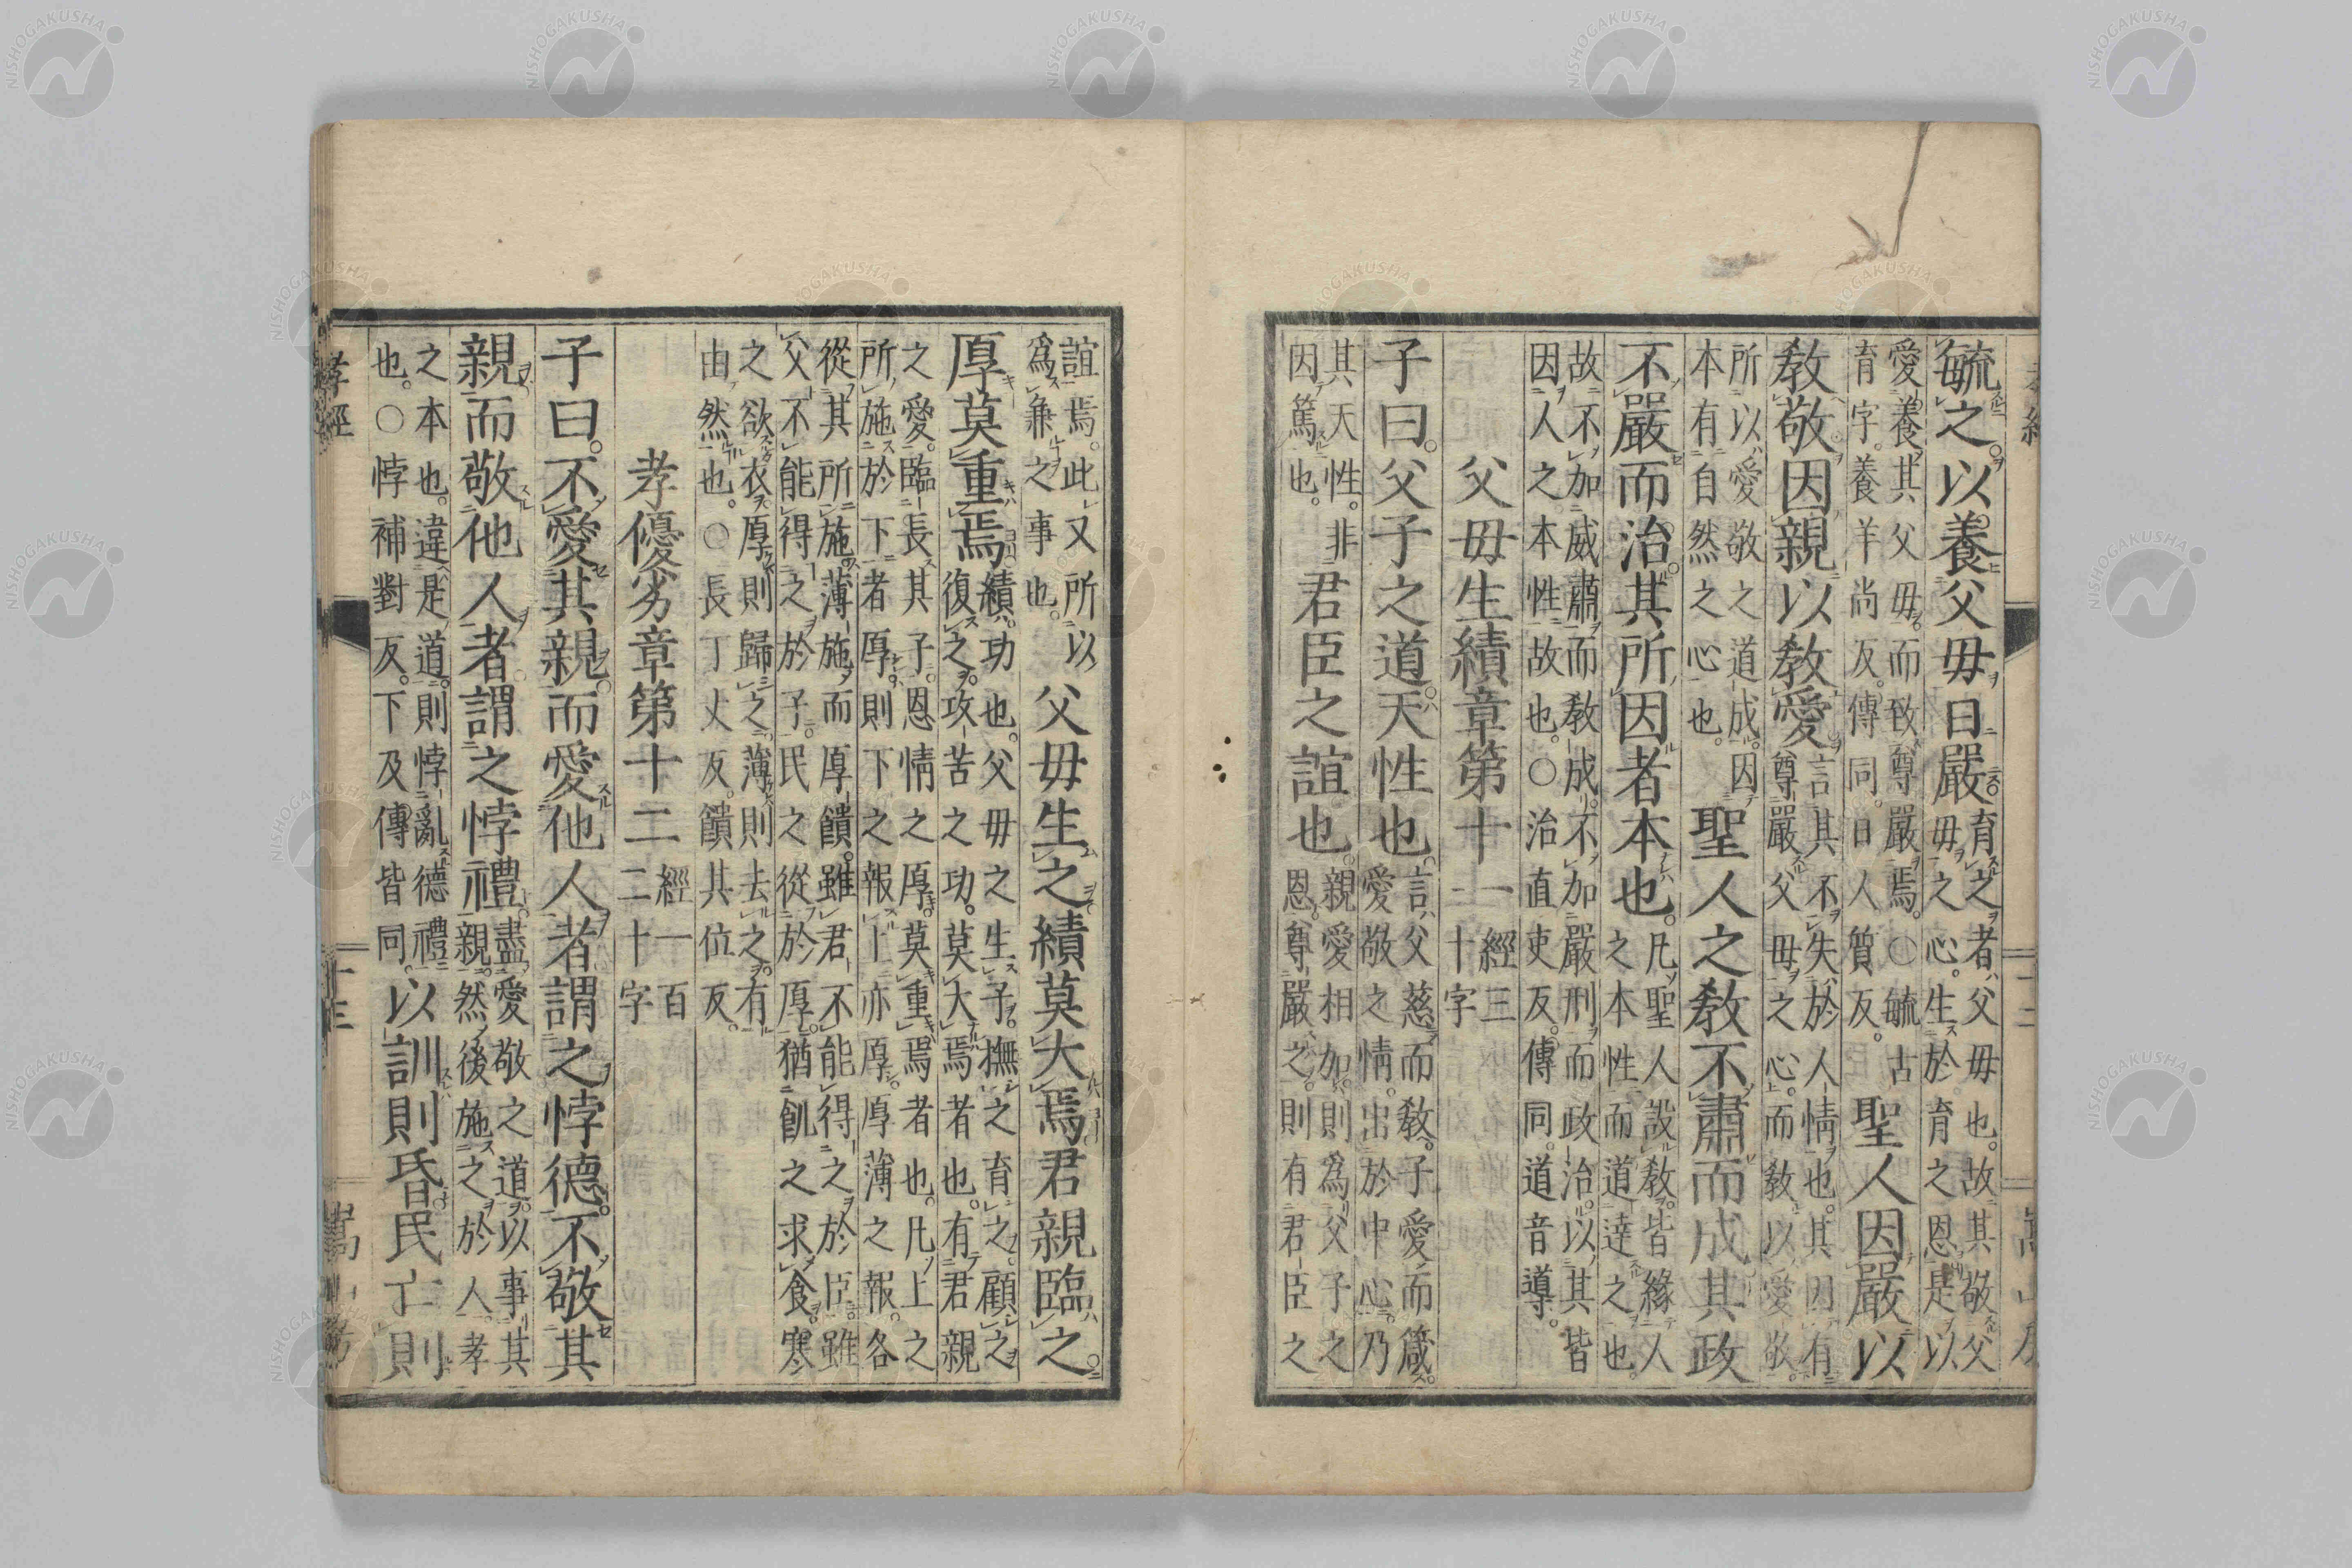 毓之。以養父毋日嚴
育之者父毋也。故其敬父
毋之心。生於育之恩。是以
愛養其父毋。而致尊嚴焉。○毓古
育字。養羊尚反。傳同。日人質反。
聖人因嚴以
敎敬因親以敎愛
言其不失於人情也。其因有
尊嚴父毋之心。而敎以愛敬。
所以愛敬之道成。因
本有自然之心也。
聖人之敎不肅而成其政
不嚴而治其所因者本也。
凡聖人設敎。皆緣人
之本性而道達之也。
故不加威肅而敎成。不加嚴刑而政治。以其皆
因人之本性故也。○治直吏反。傳同。道音導。
父毋生績章第十一
經三
十字
子曰。父子之道天性也。
言父慈而敎。子愛而箴。
愛敬之情。出於中心。乃
其天性。非
因篤也。
君臣之誼也。
親愛相加。則爲父子之
恩。尊嚴之。則有君臣之
誼焉。此又所以
爲兼之事也。
父毋生之績莫大焉君親臨之。
厚莫重焉
績功也。父毋之生子。撫之育之。顧之
復之。攻苦之功。莫大焉者也。有君親
之愛。臨長其子。恩情之厚。莫重焉者也。凡上之
所施於下者厚。則下之報上亦厚。厚薄之報。各
從其所施。薄施而厚饋。雖君不能得之於臣。雖
父不能得之於子。民之從於厚。猶飢之求食。寒
之欲衣。厚則歸之。薄則去之。有
由然也。○長丁丈反。饋其位反。
孝優劣章第十二
經一百
二十字
子曰。不愛其親。而愛他人者謂之悖德。不敬其
親而敬他人者謂之悖禮。
盡愛敬之道。以事其
親。然後施之於人。孝
之本也。違是道。則悖亂德禮
也。○悖補對反。下及傳皆同。
以訓則昏民亡則
孝經
十三
嵩山房